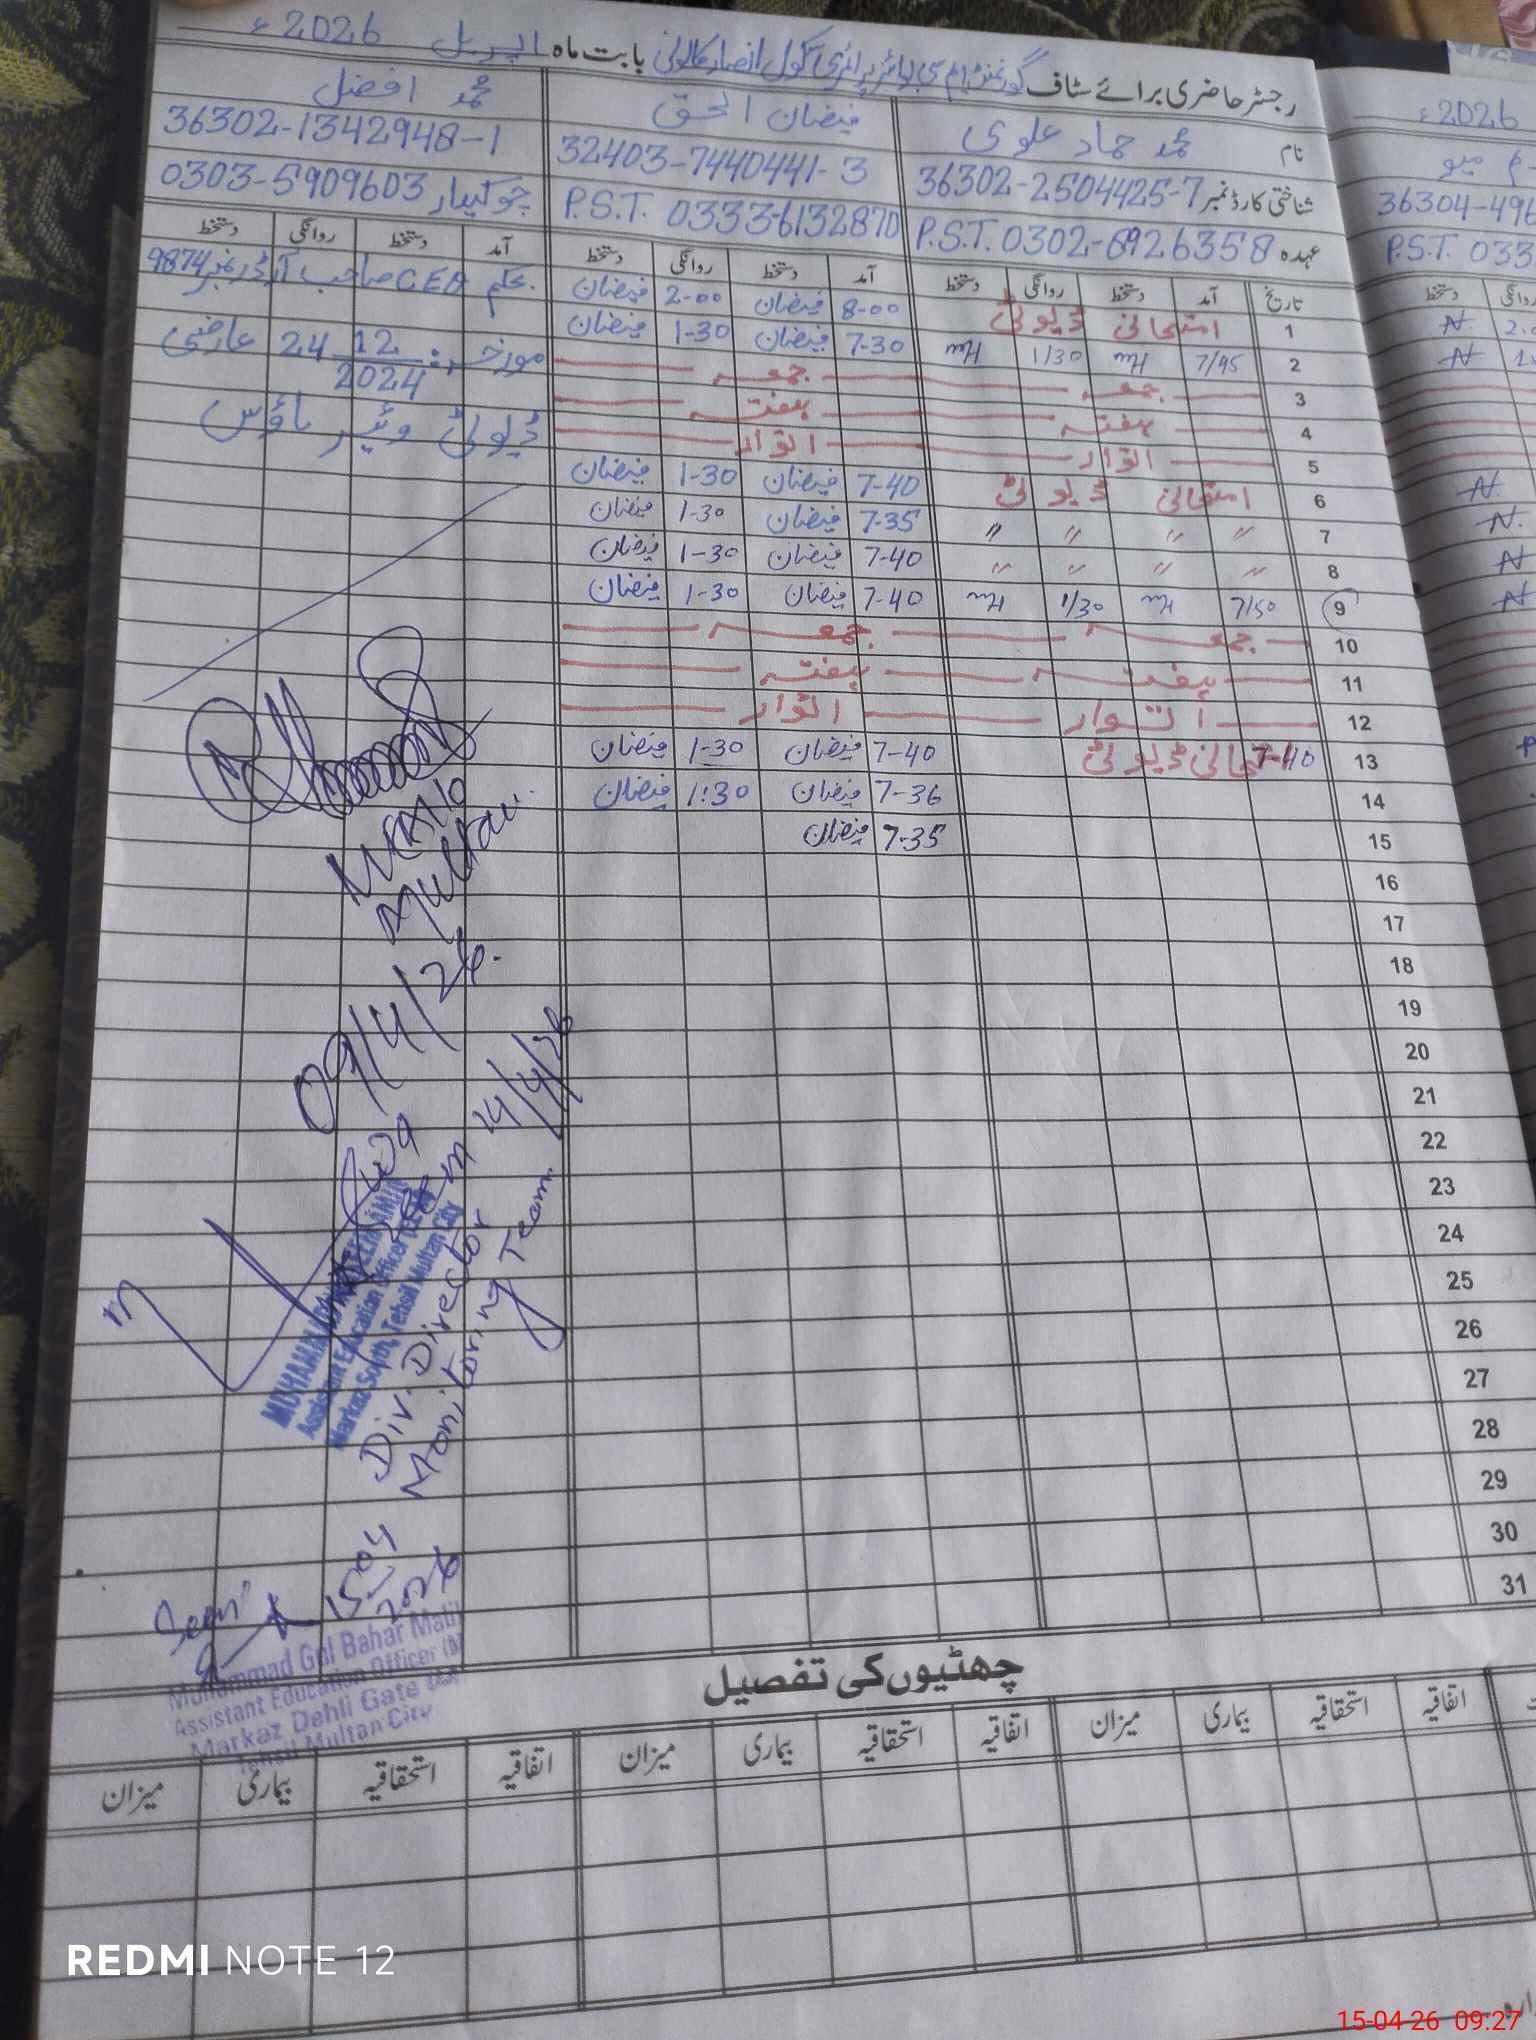 رجسٹر حاضری برائے سٹاف گورنمنٹ ایم سی بوائز پرائمری سکول انصار کالونی بابت ماہ اپریل 2026ء
نام محمد حماد علوی فیضان الحق محمد افضل
شناختی کارڈ نمبر 36302-2504425-7 32403-7440441-3 36302-1342948-1
عہدہ P.S.T. 0302-8926358 P.S.T. 0333-6132870 چوکیدار 0303-5909603
تاریخ آمد دستخط روانگی دستخط آمد دستخط روانگی دستخط آمد دستخط روانگی دستخط
1 امتحانی ڈیوٹی 8-00 فیضان 2-00 فیضان بحکم CEO صاحب آرڈر نمبر 9874
2 7/45 1/30 7-30 فیضان 1-30 فیضان مورخہ: 24 12/2024 عارضی
3 جمعہ جمعہ
4 ہفتہ ہفتہ ڈیوٹی ویئر ہاؤس
5 اتوار اتوار
6 امتحانی ڈیوٹی 7-40 فیضان 1-30 فیضان
7 〃 〃 〃 〃 7-35 فیضان 1-30 فیضان
8 〃 〃 〃 〃 7-40 فیضان 1-30 فیضان
9 7/50 1/30 7-40 فیضان 1-30 فیضان
10 جمعہ جمعہ
11 ہفتہ ہفتہ
12 اتوار اتوار
13 7-40 ڈیوٹی 7-40 فیضان 1-30 فیضان
14 7-36 فیضان 1:30 فیضان
15 7-35 فیضان
16
17
18
19
20
21
22
23
24
25
26
27
28
29
30
31
Multan
09/4/26
14/4/26
Assistant Education Officer
Markaz South, Tehsil Multan City
Div. Director
Monitoring Team
Seen
15-04
2026
Muhammad Gul Bahar Malik
Assistant Education Officer
Markaz Dehli Gate
Tehsil Multan City
چھٹیوں کی تفصیل
اتفاقیہ استحقاقیہ بیماری میزان اتفاقیہ استحقاقیہ بیماری میزان اتفاقیہ استحقاقیہ بیماری میزان
2026ء
36304-491
P.S.T. 033
دستخط روانگی
REDMI NOTE 12
15-04-26 09:27